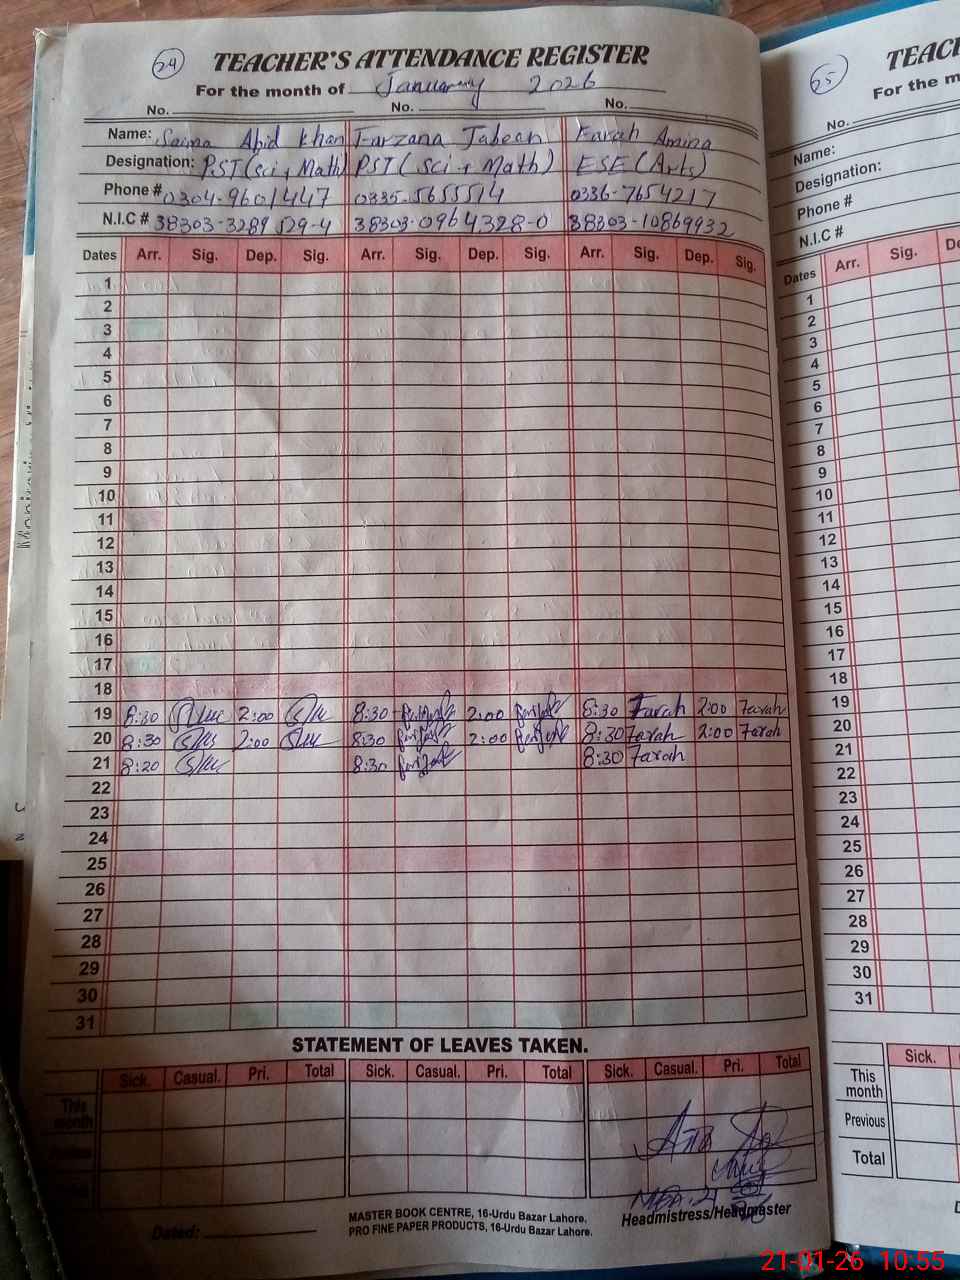 24 TEACHER'S ATTENDANCE REGISTER
For the month of January 2026
No. No. No.
Name: Saima Abid Khan Farzana Jabeen Farah Amina
Designation: PST (Sci + Math) PST (Sci + Math) ESE (Arts)
Phone # 0304-9601447 0335-5655514 0336-7654217
N.I.C # 38303-3289529-4 38303-0964328-0 38303-10869932
Dates Arr. Sig. Dep. Sig. Arr. Sig. Dep. Sig. Arr. Sig. Dep. Sig.
1
2
3
4
5
6
7
8
9
10
11
12
13
14
15
16
17
18
19 8:30 2:00 8:30 2:00 8:30 Farah 2:00 Farah
20 8:30 2:00 8:30 2:00 8:30 Farah 2:00 Farah
21 8:20 8:30 8:30 Farah
22
23
24
25
26
27
28
29
30
31
STATEMENT OF LEAVES TAKEN.
Sick. Casual. Pri. Total Sick. Casual. Pri. Total Sick. Casual. Pri. Total
This month
Dated:
MASTER BOOK CENTRE, 16-Urdu Bazar Lahore.
PRO FINE PAPER PRODUCTS, 16-Urdu Bazar Lahore.
Headmistress/Headmaster
25 TEAC
For the m
No.
Name:
Designation:
Phone #
N.I.C #
Dates Arr. Sig. De
1
2
3
4
5
6
7
8
9
10
11
12
13
14
15
16
17
18
19
20
21
22
23
24
25
26
27
28
29
30
31
Sick.
This month
Previous
Total
21-01-26 10:55